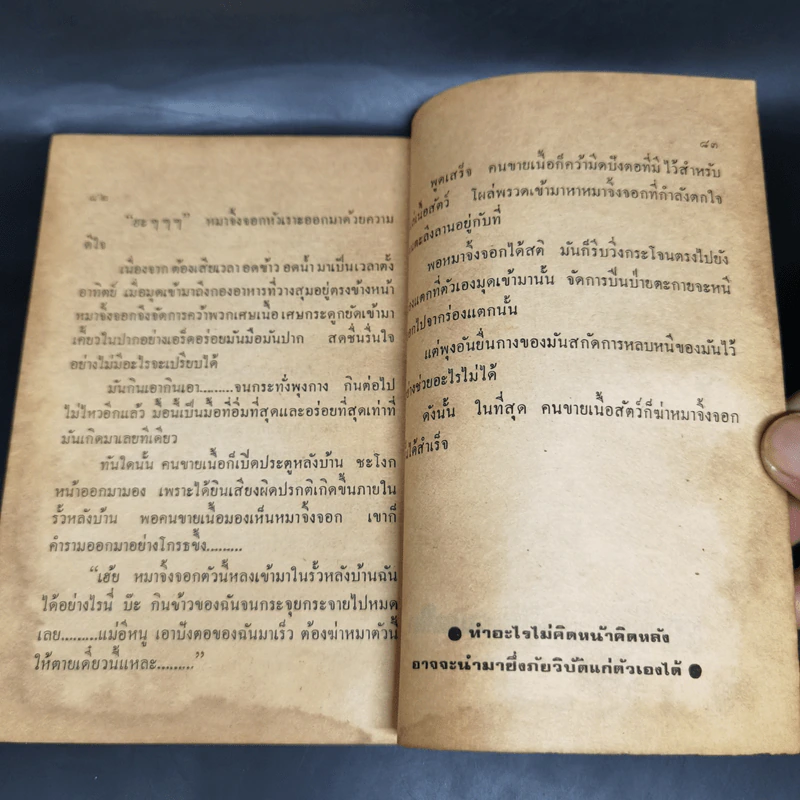 ๘๒
"ฮะ ๆ ๆ ๆ" หมาจิ้งจอกหัวเราะออกมาด้วยความ
ดีใจ
เนื่องจาก ต้องเสียเวลา อดข้าว อดน้ำ มาเป็นเวลาตั้ง
อาทิตย์ เมื่อมุดเข้ามาถึงกองอาหารที่วางสุมอยู่ตรงข้างหน้า
หมาจิ้งจอกจึงจัดการคว้าพวกเศษเนื้อ เศษกระดูกยัดเข้ามา
เคี้ยวในปากอย่างเอร็ดอร่อยมันมือมันปาก สดชื่นรื่นใจ
อย่างไม่มีอะไรจะเปรียบได้
มันกินเอากินเอา.........จนกระทั่งพุงกาง กินต่อไป
ไม่ไหวอีกแล้ว มื้อนี้เป็นมื้อที่อิ่มที่สุดและอร่อยที่สุดเท่าที่
มันเกิดมาเลยทีเดียว
ทันใดนั้น คนขายเนื้อก็เปิดประตูหลังบ้าน ชะโงก
หน้าออกมามอง เพราะได้ยินเสียงผิดปรกติเกิดขึ้นภายใน
รั้วหลังบ้าน พอคนขายเนื้อมองเห็นหมาจิ้งจอก เขาก็
คำรามออกมาอย่างโกรธขึ้ง.........
"เฮ้ย หมาจิ้งจอกตัวนี้หลงเข้ามาในรั้วหลังบ้านฉัน
ได้อย่างไรนี่ บ๊ะ กินข้าวของฉันจนกระจุยกระจายไปหมด
เลย.........แม่อีหนู เอาปังตอของฉันมาเร็ว ต้องฆ่าหมาตัวนี้
ให้ตายเดี๋ยวนี้แหละ........."
๘๓
พูดเสร็จ คนขายเนื้อก็คว้ามีดปังตอที่มีไว้สำหรับ
เนื้อสัตว์ โผล่พรวดเข้ามาหาหมาจิ้งจอกที่กำลังตกใจ
ตะลึงลานอยู่กับที่
พอหมาจิ้งจอกได้สติ มันก็รีบวิ่งกระโจนตรงไปยัง
งแตกที่ตัวเองมุดเข้ามานั้น จัดการปีนป่ายตะกายจะหนี
กไปจากร่องแตกนั้น
แต่พุงอันยื่นกางของมันสกัดการหลบหนีของมันไว้
างช่วยอะไรไม่ได้
ดังนั้น ในที่สุด คนขายเนื้อสัตว์ก็ฆ่าหมาจิ้งจอก
ได้สำเร็จ
● ทำอะไรไม่คิดหน้าคิดหลัง
อาจจะนำมาซึ่งภัยวิบัติแก่ตัวเองได้ ●